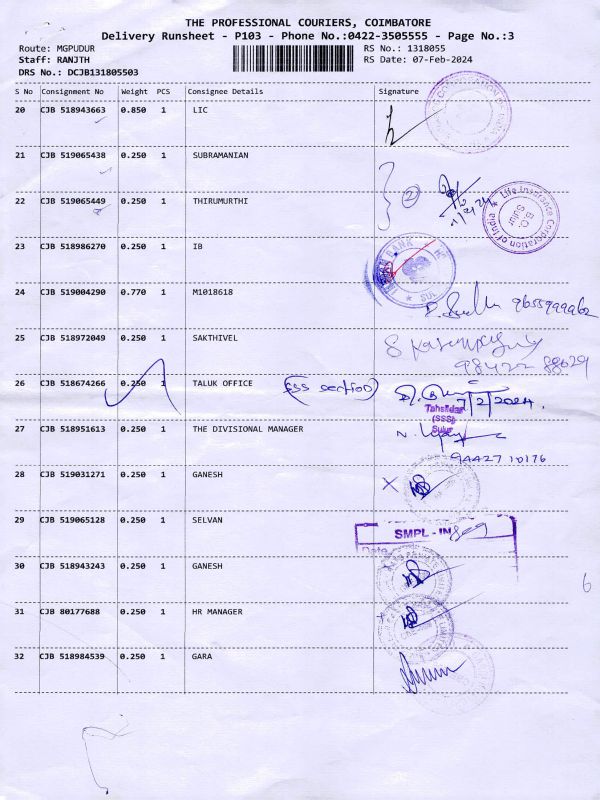 THE PROFESSIONAL COURIERS, COIMBATORE
Delivery Runsheet - P103 - Phone No.:0422-3505555 - Page No.:3
Route: MGPUDUR RS No.: 1318055
Staff: RANJTH RS Date: 07-Feb-2024
DRS No.: DCJB131805503
S No Consignment No Weight PCS Consignee Details Signature
20 CJB 518943663 0.850 1 LIC
21 CJB 519065438 0.250 1 SUBRAMANIAN
22 CJB 519065449 0.250 1 THIRUMURTHI
2
Life Insurance Corporation of India
B.O.
Sulur
23 CJB 518986270 0.250 1 IB
24 CJB 519004290 0.770 1 M1018618
9655999962
25 CJB 518972049 0.250 1 SAKTHIVEL
98422 88629
26 CJB 518674266 0.250 1 TALUK OFFICE (SSS section)
7/2/2024.
Tahsildar
(SSS)
Sulur
27 CJB 518951613 0.250 1 THE DIVISIONAL MANAGER
94427 10176
28 CJB 519031271 0.250 1 GANESH
29 CJB 519065128 0.250 1 SELVAN
SMPL - IN
Date
30 CJB 518943243 0.250 1 GANESH
6
31 CJB 80177688 0.250 1 HR MANAGER
32 CJB 518984539 0.250 1 GARA